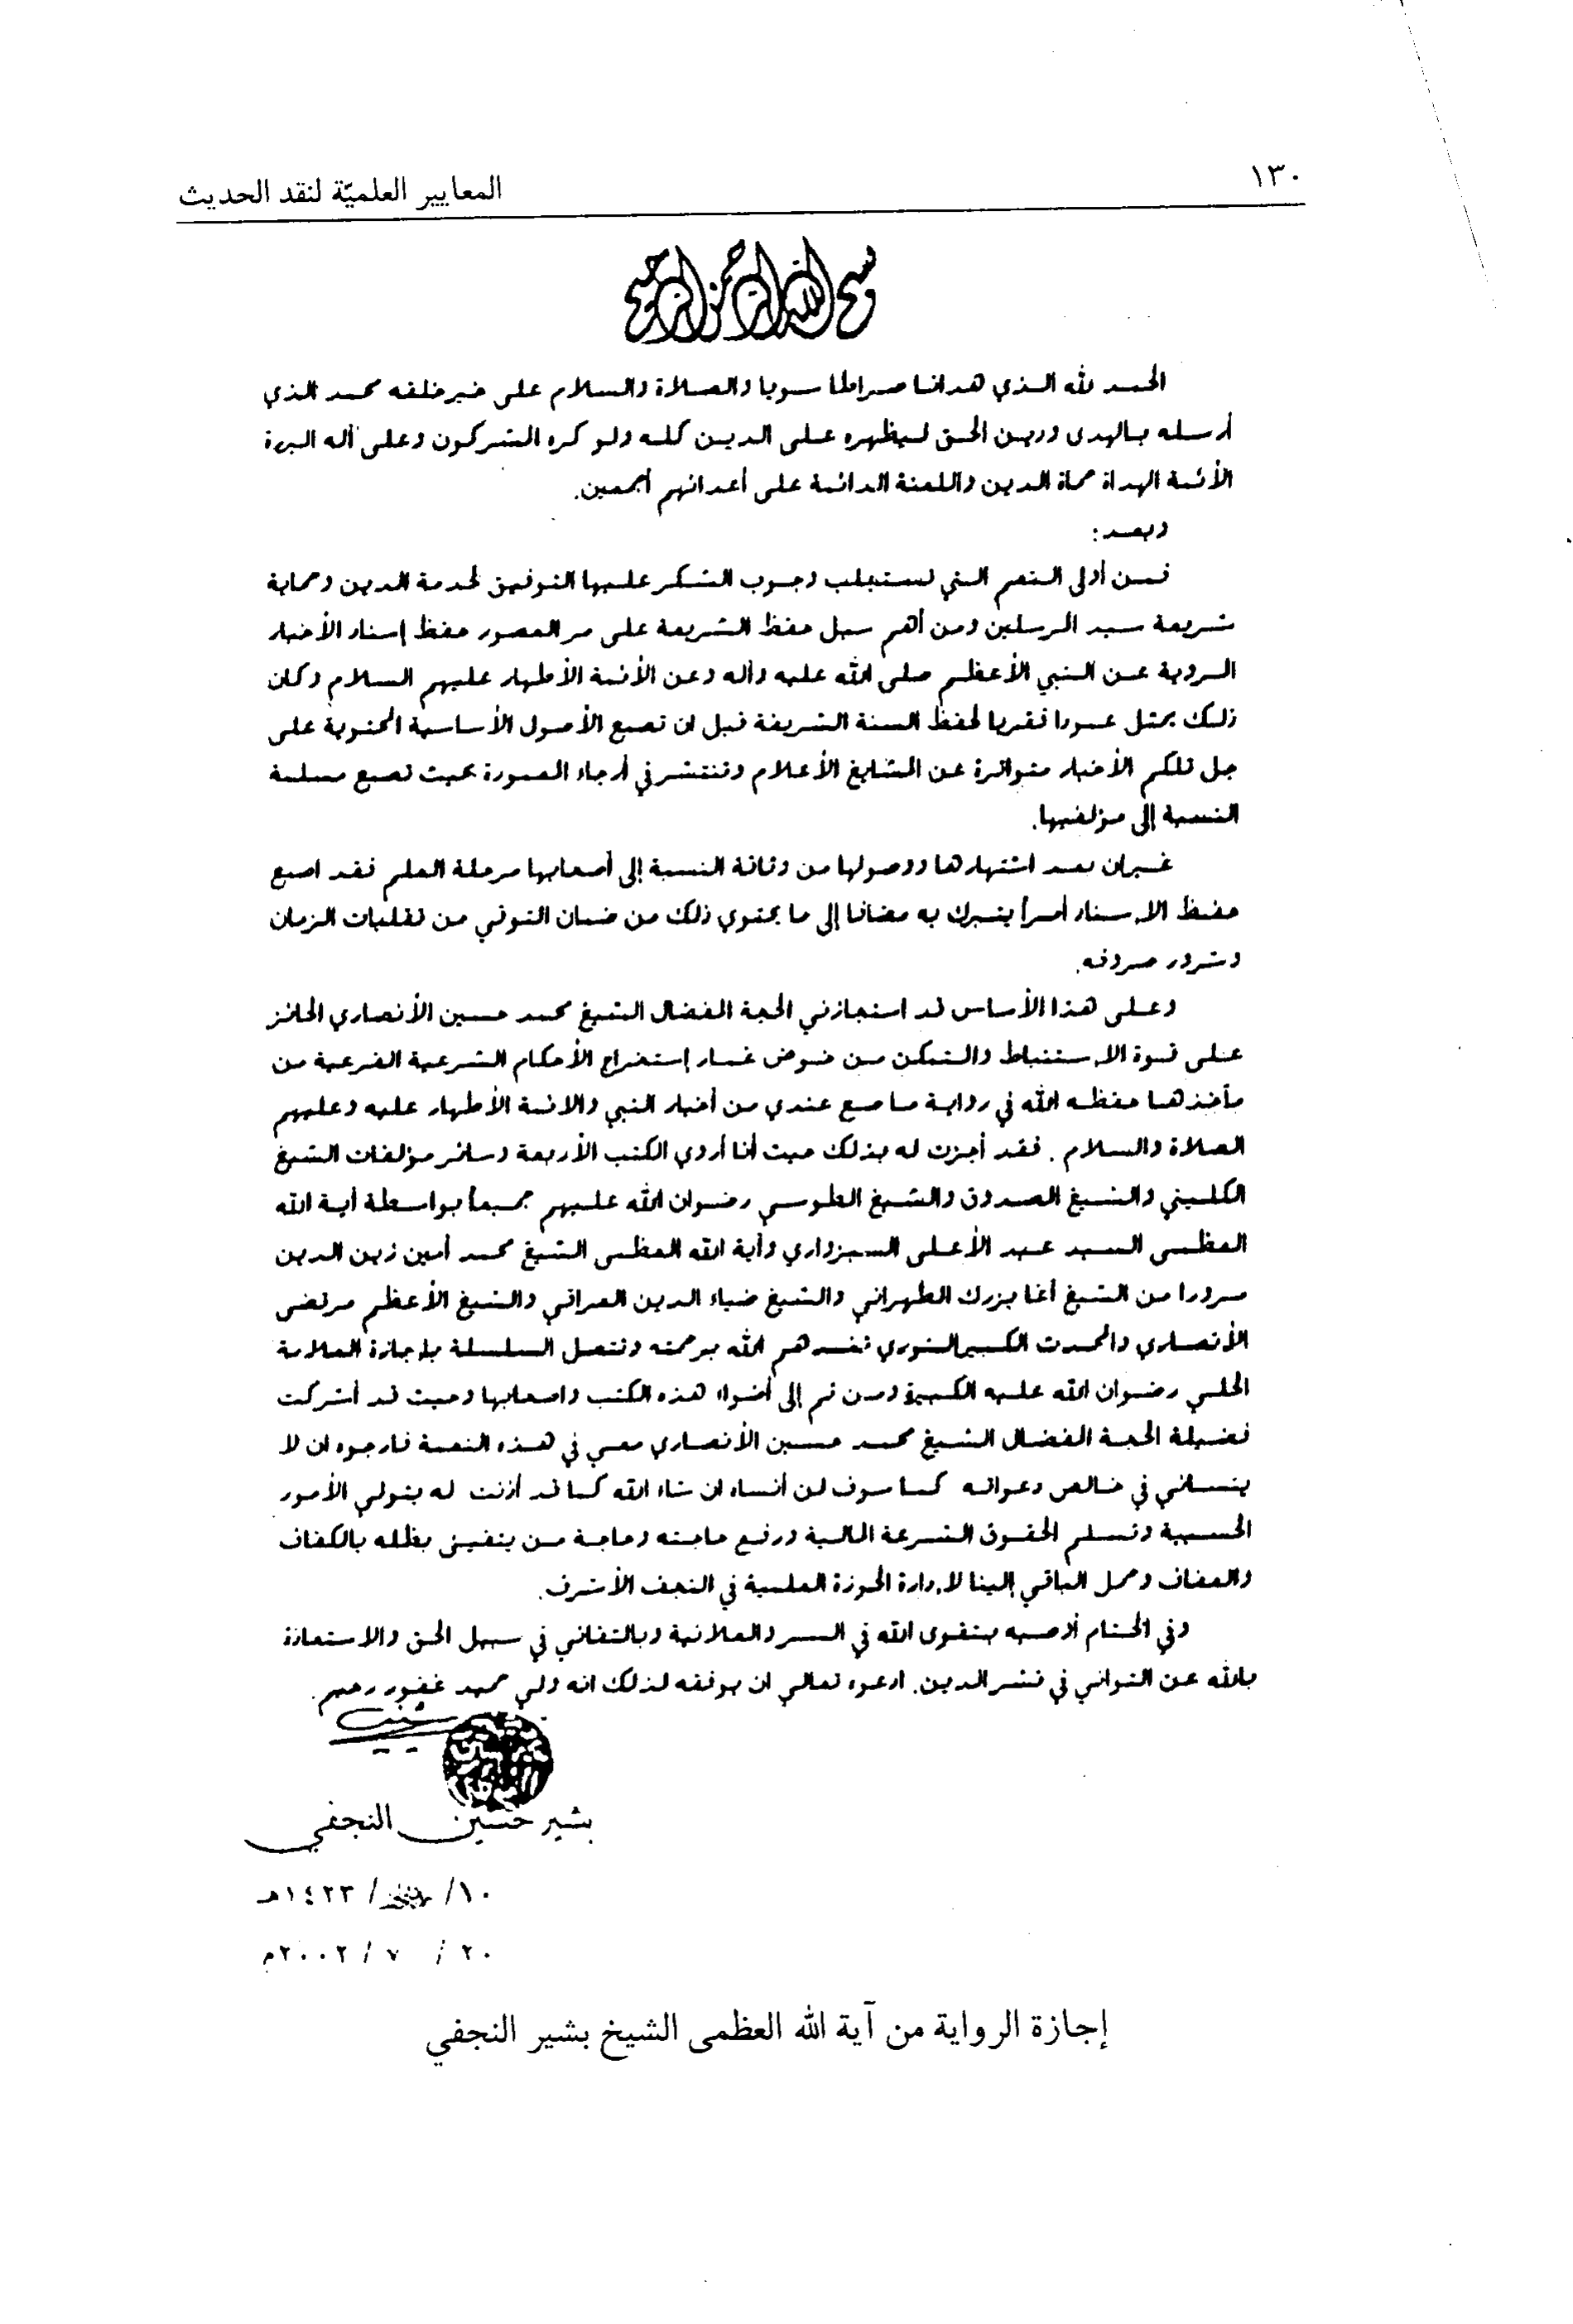 ١٣٠
المعايير العلميّة لنقد الحديث
بسم الله الرحمن الرحيم
الحمد لله الذي هدانا صراطا سويا والصلاة والسلام على خير خلقه محمد الذي
أرسله بالهدى ودين الحق ليظهره على الدين كله ولو كره المشركون وعلى آله البررة
الأئمة الهداة حماة الدين واللعنة الدائمة على أعدائهم أجمعين.
وبعد:
فمن أولى النعم التي تستجلب وجوب الشكر عليها التوفيق لخدمة الدين وحماية
شريعة سيد المرسلين ومن أهم سبل حفظ الشريعة على مر العصور حفظ إسناد الأخبار
المروية عن النبي الأعظم صلى الله عليه وآله وعن الأئمة الأطهار عليهم السلام وكان
ذلك يمثل عمودا فقريا لحفظ السنة الشريفة قبل ان تصبح الأصول الأساسية المحتوية على
جل تلكم الأخبار متواترة عن المشايخ الأعلام وتنتشر في أرجاء المعمورة بحيث تصبح مسلمة
النسبة إلى مؤلفيها.
غير ان بعد اشتهارها ووصولها من وثاقة النسبة إلى أصحابها مرحلة العلم فقد اصبح
حفظ الاسناد أمرا يتبرك به مضافا إلى ما يحتوي ذلك من ضمان التوقي من تقلبات الزمان
وشرور صروفه.
وعلى هذا الأساس قد استجازني الحجة المفضال الشيخ محمد حسين الأنصاري الحائز
على قوة الاستنباط والتمكن من خوض غمار إستخراج الأحكام الشرعية الفرعية من
مآخذها حفظه الله في رواية ما صح عندي من أخبار النبي والائمة الأطهار عليه وعليهم
الصلاة والسلام. فقد أجزت له بذلك حيث أنا أروي الكتب الأربعة وسائر مؤلفات الشيخ
الكليني والشيخ الصدوق والشيخ الطوسي رضوان الله عليهم جميعا بواسطة آية الله
العظمى السيد عبد الأعلى السبزواري وآية الله العظمى الشيخ محمد أمين زين الدين
مرورا من الشيخ آغا بزرك الطهراني والشيخ ضياء الدين العراقي والشيخ الأعظم مرتضى
الأنصاري والمحدث الكبير النوري تغمدهم الله برحمته وتتصل السلسلة بإجازة العلامة
الحلي رضوان الله عليه الكبيرة ومن ثم إلى أضواء هذه الكتب واصحابها وحيث قد أشركت
فضيلة الحجة المفضال الشيخ محمد حسين الأنصاري معي في هذه النعمة فارجوه ان لا
ينساني في خالص دعواته كما سوف لن أنساه ان شاء الله كما قد أذنت له بتولي الأمور
الحسبية وتسلم الحقوق الشرعة المالية ورفع حاجته وحاجة من يتفيئ بظله بالكفاف
والعفاف وحمل الباقي إلينا لإدارة الحوزة العلمية في النجف الأشرف.
وفي الختام أوصيه بتقوى الله في السر والعلانية وبالتفاني في سبيل الحق والاستعاذة
بالله عن التواني في نشر الدين. ادعوه تعالى ان يوفقه لذلك انه ولي حميد غفور رحيم.
بشير حسين النجفي
١٠/ /١٤٢٣هـ
٢٠ / ٧ / ٢٠٠٢م
إجازة الرواية من آية الله العظمى الشيخ بشير النجفي